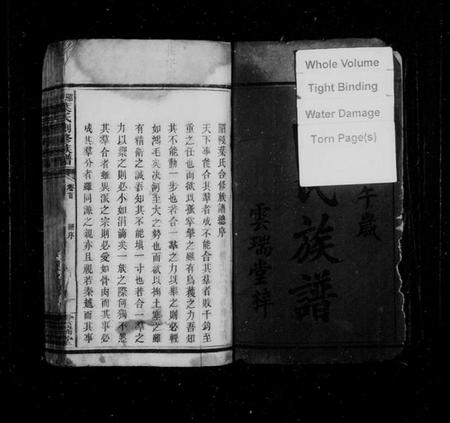 Whole Volume
Tight Binding
Water Damage
Torn Page(s)
午歲
氏族譜
雲瑞堂梓
葉氏合修族譜總序
天下事能合其羣者成不能合其羣者敗千鈞至
重之任也而欲以孤掌擎之雖有烏獲之力吾知
其不能動一步也若合一羣之力以舉之則必輕
如鴻毛矣決河至大之勢也而欲以掬土塞之雖
有精衛之誠吾知其不能填一寸也若合一羣之
力以塞之則必小如涓滴矣一族之際何獨不然
其羣合者雖異派之宗則必愛如骨肉而其事必
成其羣分者雖同派之親亦且視若秦越而其事
葉氏合修族譜
卷首
總序